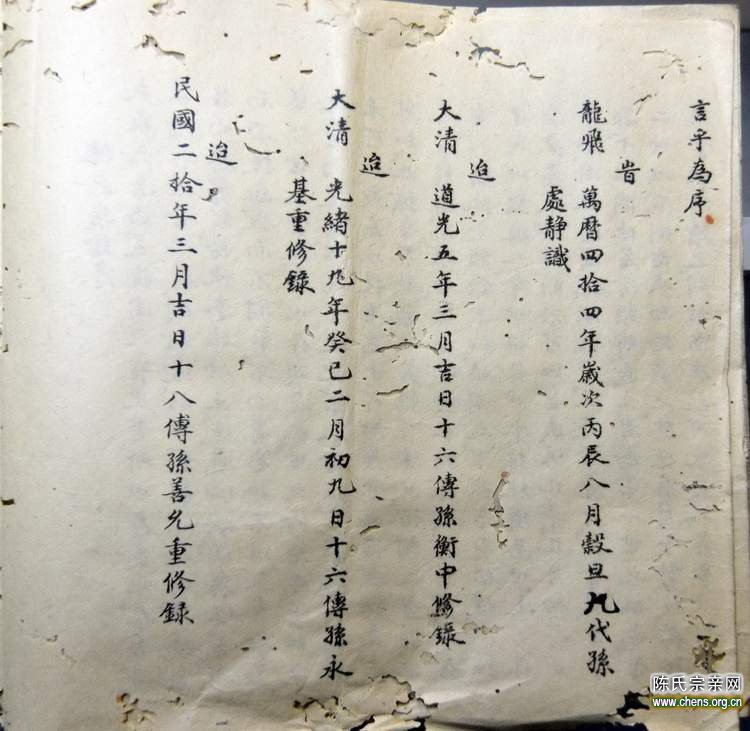 言乎為序
旹
龍飛 萬曆四拾四年歲次丙辰八月穀旦九代孫
處静識
迨
大清 道光五年三月吉日十六傳孫衡中修錄
迨
大清 光緒十九年癸巳二月初九日十六傳孫永
基重修錄
迨
民國二拾年三月吉日十八傳孫善允重修録
陈氏宗亲网
www.chens.org.cn